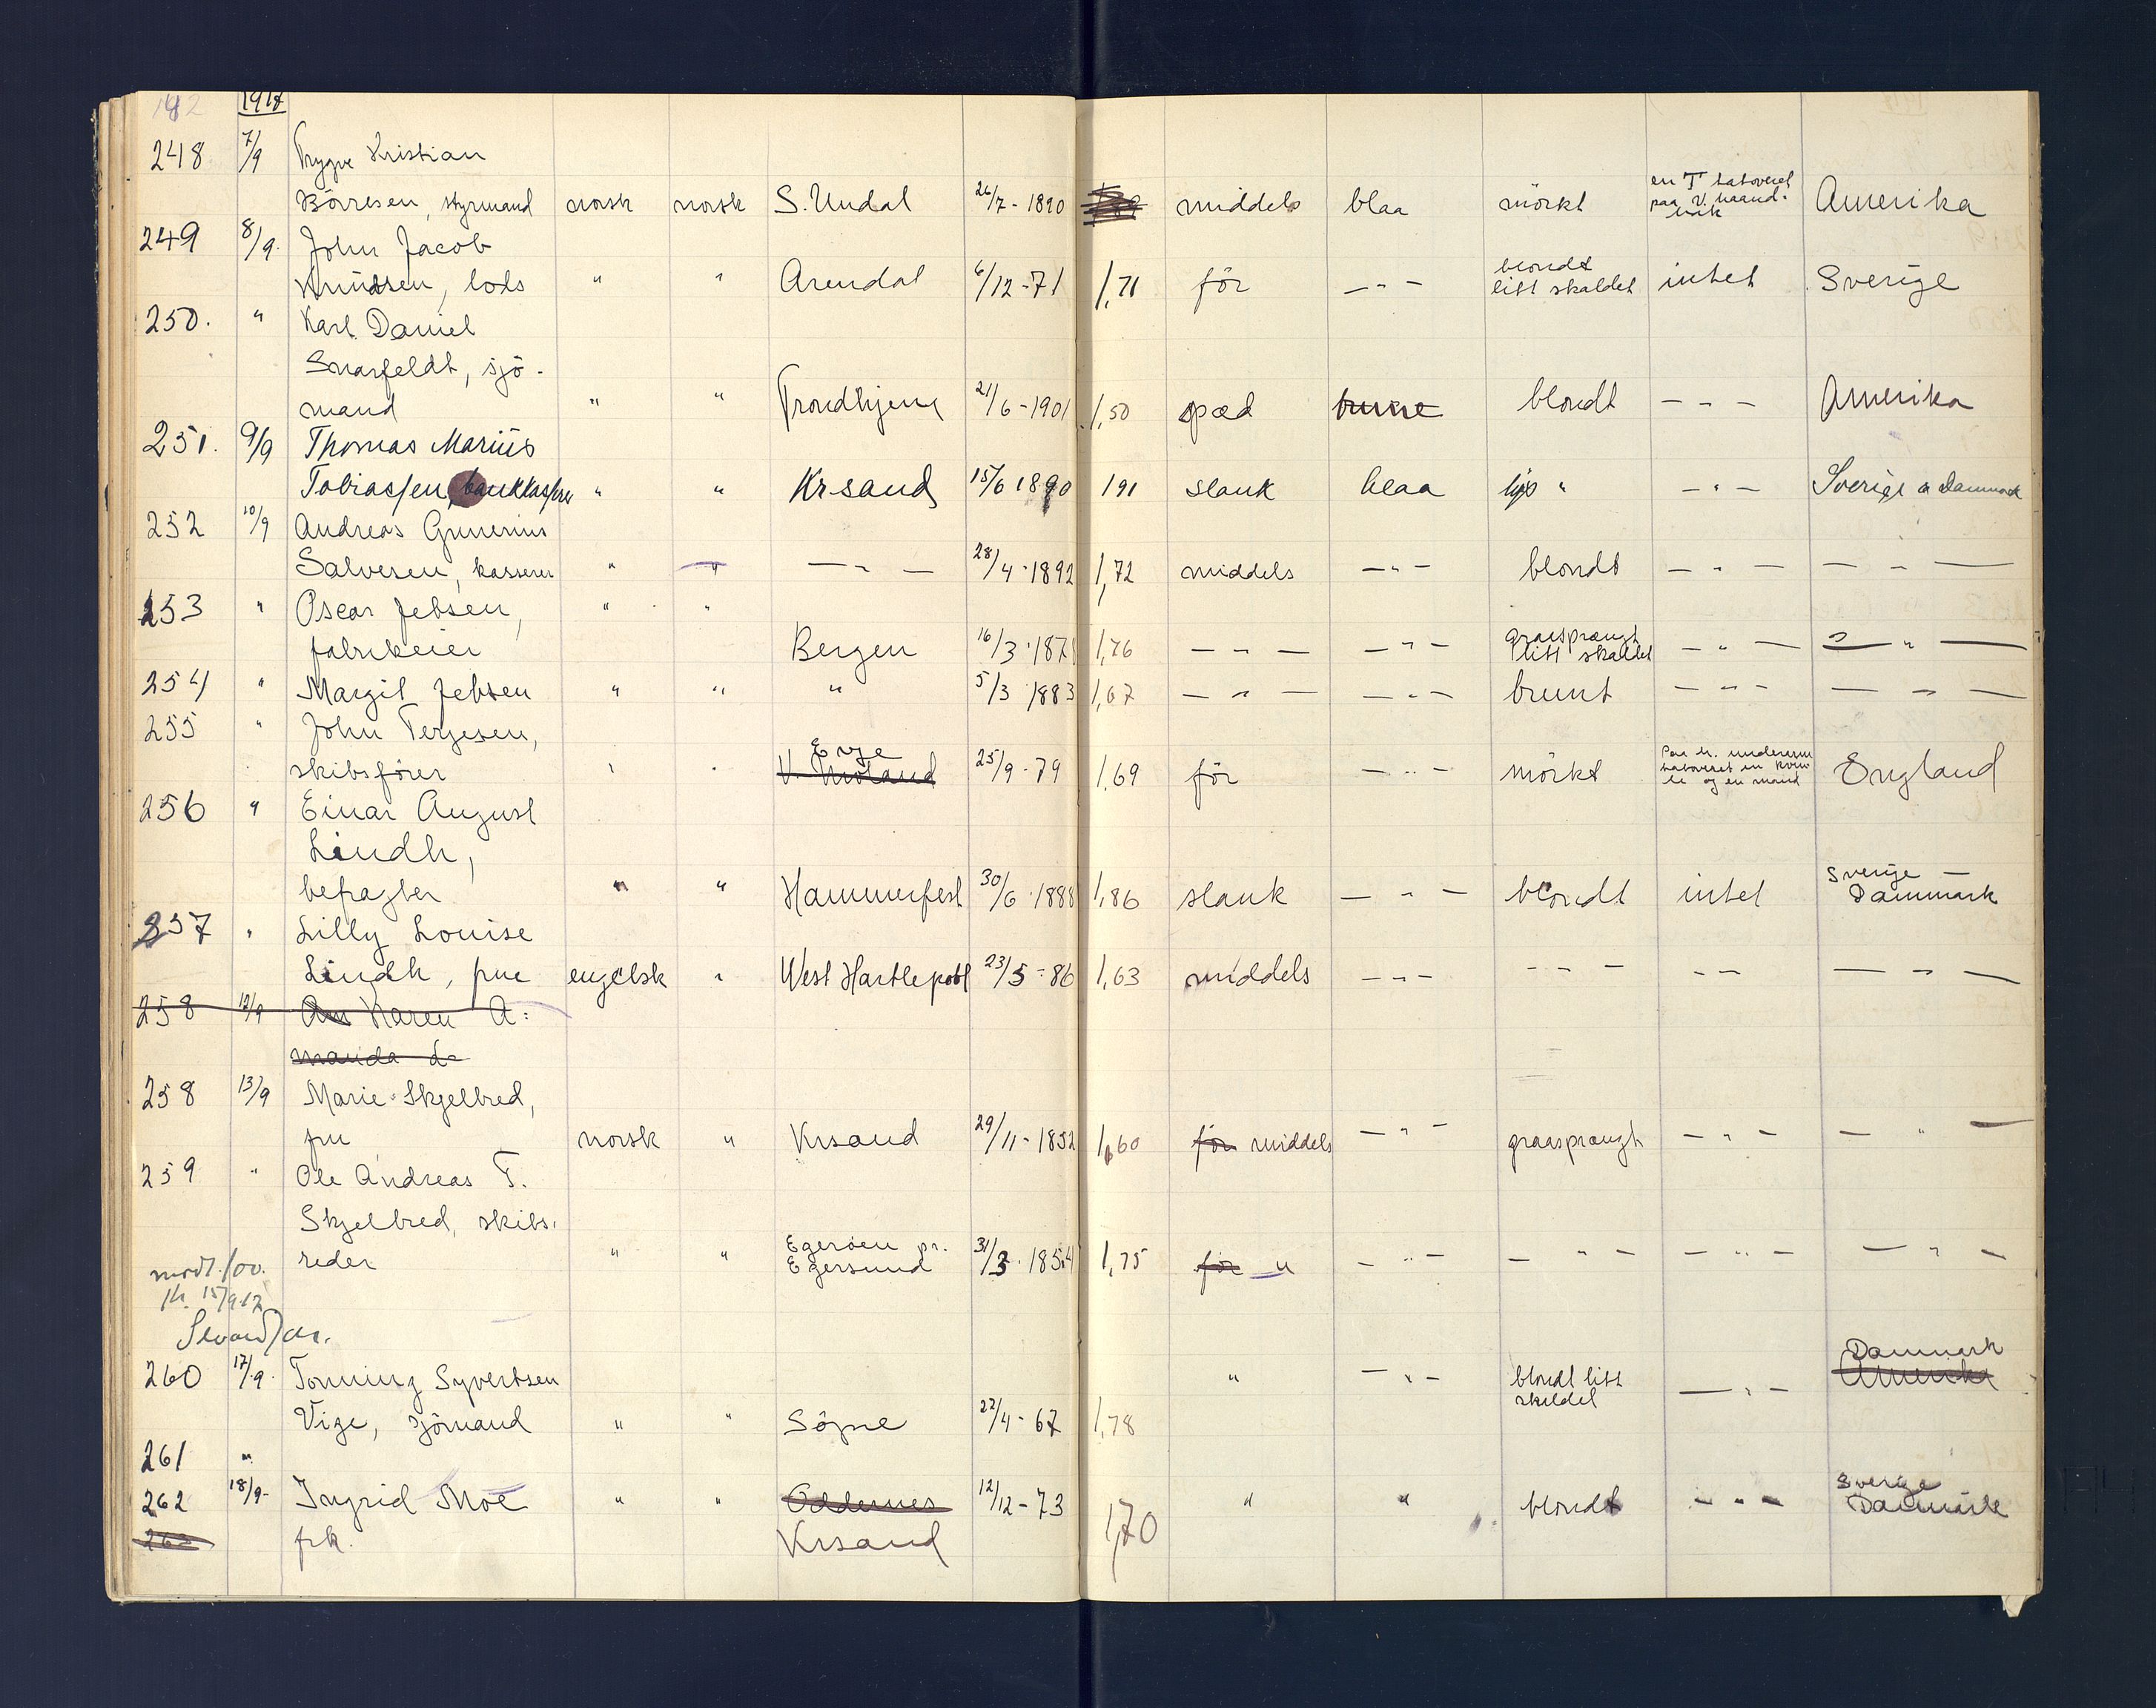 1917
248 7/9 Trygve Kristian
Börresen, styrmand norsk norsk S. Undal 26/7 - 1890 middels blaa mörkt en T tatoveret paa v. haand- Amerika
249 8/9 John Jacob
Knudsen, lods " " Arendal 6/12 - 71 1,71 för — " — blondt litt skaldet intet Sverige
250. " Karl Daniel
Snarfeldt, sjö-
mand " " Trondhjem 21/6 - 1901 1,50 spæd brune blondt — " — Amerika
251. 9/9 Thomas Marius
Tobiassen, bankkasserer " " Krsand 15/6 1890 191 slank blaa lys " — " — Sverige & Danmark
252 10/9 Andreas Gunerius
Salvesen, kasserer " " — " — 28/4 - 1892 1,72 middels — " — blondt — " — — " —
253 " Oscar Jebsen, " "
fabrikeier Bergen 16/3 - 1871 1,76 — " — — " — graasprængt litt skaldet — " — — " —
254 " Margit Jebsen " " " 5/3 1883 1,67 — " — — " — brunt — " — — " —
255 " John Terjesen,
skibsförer " " V. Moland Evje 25/9 - 79 1,69 för — " — mörkt Paa h. underarm tatoveret en kvin- ne og en mand England
256 " Einar August
Lindh,
befragter " " Hammerfest 30/6 - 1888 1,86 slank — " — blondt intet Sverige — Danmark
257 " Lilly Louise
Lindh, frue engelsk " West Hartlepool 23/5 - 86 1,63 middels — " — — " — — " — — " —
258 12/9 Karen A-
manda
258 13/9 Marie Skjelbred,
fru norsk " Krsand 29/11 - 1852 1,60 för middels — " — graasprængt — " — — " —
259 " Ole Andreas T.
Skjelbred, skibs-
reder " " Egeröen pr. Egersund 31/3 - 1854 1,75 för " — " — — " — — " — — " —
15/9 17
260 17/9 Tonning Syvertsen " — " — blondt litt skaldet — " — Amerika Danmark
Vige, sjömand " " Sögne 22/4 - 67 1,78
261 "
262 18/9 - Ingrid Moe " " Oddernes 12/12 - 73 1,70 " " blondt — " — Sverige Danmark
frk. Krsand